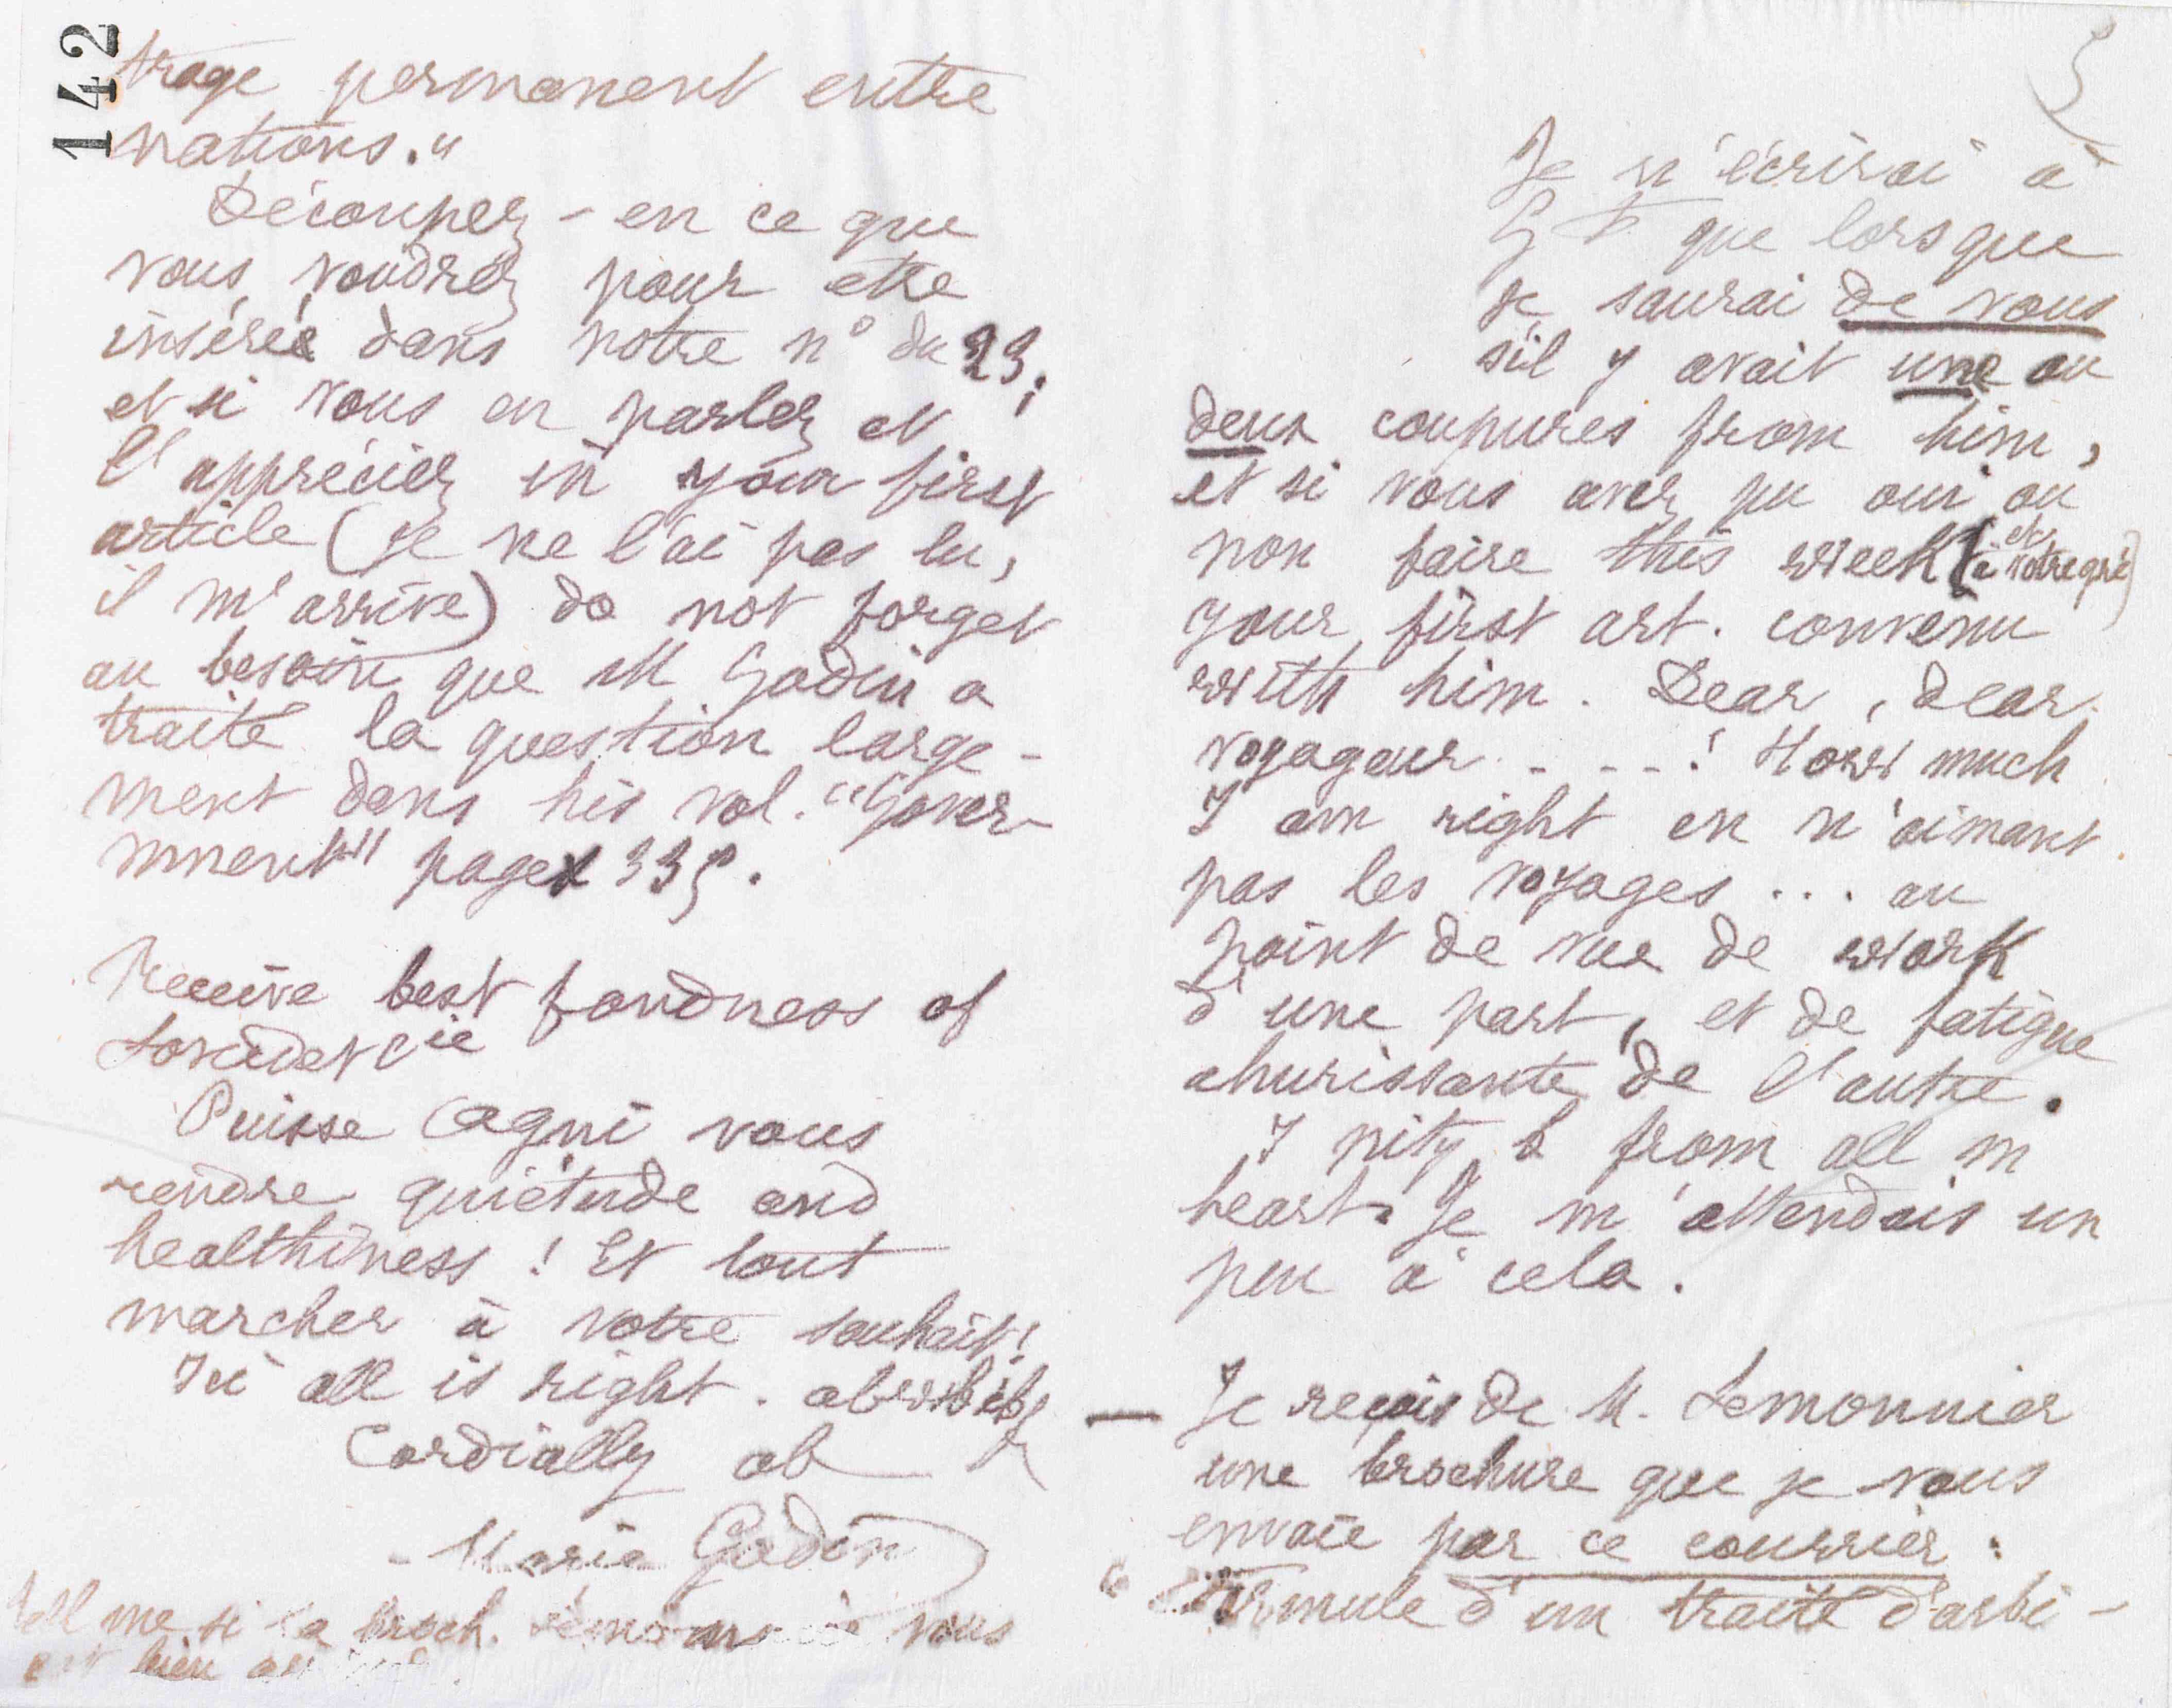 5
Je n'écrirai à
G F que lorsque
je saurai de vous
s'il y avait une ou
deux coupures from him,
et si vous avez pu oui ou
non faire this week (et à votre gré)
your first art. convenu
with him. Dear, dear
voyageur . - - - ! How much
I am right en n'aimant
pas les voyages ... au
point de vue de work
d'une part, et de fatigue
ahurissante de l'autre.
I pity from all m
heart. Je m'attendais un
peu à cela.
— Je reçois de M. Lemonnier
une brochure que je vous
envoie par ce courrier :
"Formule d'un traité d'arbi-
142
trage permanent entre
nations."
Découpez-en ce que
vous voudrez pour être
inséré dans notre n° du 23;
et si vous en parlez et
l'appréciez in your first
article (je ne l'ai pas lu,
il m'arrive) do not forget
au besoin que M Godin a
traité la question large-
ment dans his vol. "Gover-
nment" page 335.
Receive best fondness of
Loridet Cie
Puisse Agni vous
rendre quiétude and
healthiness ! Et tout
marcher à votre souhait!
Ici all is right.
Cordially
Marie Godin
Tell me si la broch. Lemonnier vous
est bien